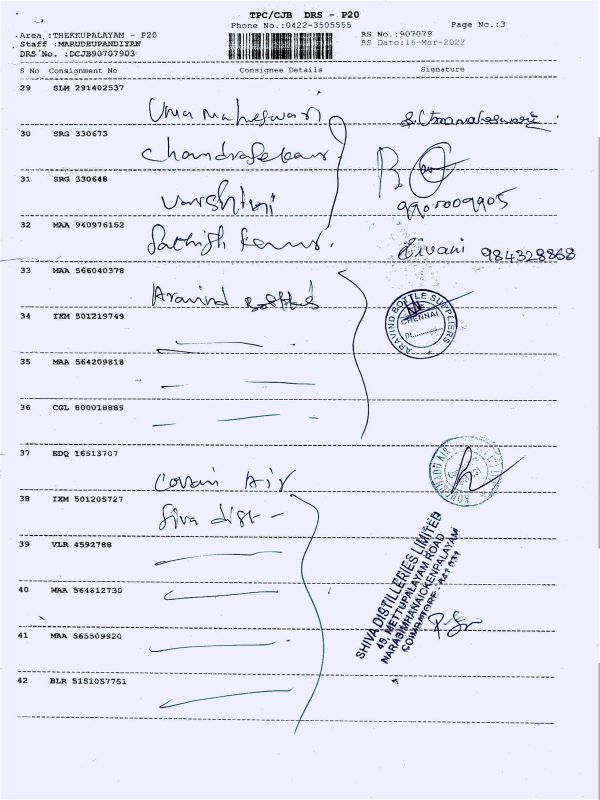 TPC/CJB DRS - P20
Phone No.:0422-3505555
Page No.:3
Area :THEKKUPALAYAM - P20
RS No.:907079
Staff :MARUDHUPANDIYAN
RS Date:16-Mar-2022
DRS No. :DCJB90707903
S No Consignment No Consignee Details Signature
29 SLM 291402537
Uma maheswari S. Umamaheswari
30 SRG 330673
Chandrasekaar.
31 SRG 330648
Varshini 9901009905
32 MAA 940976152
Sathish Kumar. Jivani 984328868
33 MAA 566040378
Aravind Bottles
ARAVIND BOTTLE SUPPLIERS
CHENNAI
34 IXM 501219749
35 MAA 564209818
36 CGL 800018885
37 EDQ 16513707
Covai Air
38 IXM 501205727
Siva dist -
39 VLR 4592788
SHIVA DISTILLERIES LIMITED
45, METTUPALAYAM ROAD
NARASIMHANAICKENPALAYAM
COIMBATORE - 641 031
40 MAA 564812730
41 MAA 565509920
42 BLR 5151057751